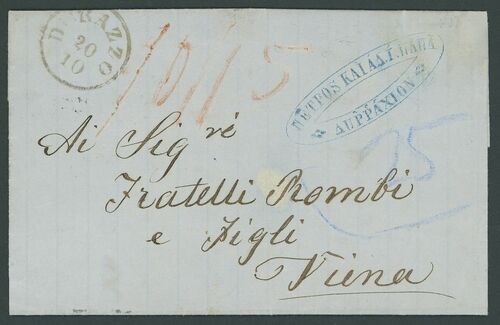 DURAZZO
20
10
10/15
ΠΕΤΡΟΣ ΚΑΙ ΑΔ. Ι. ΠΑΠΑ
ΔΥΡΡΑΧΙΟΝ
25
Ai Sig^ri
Fratelli Rombi
e Figli
Viena